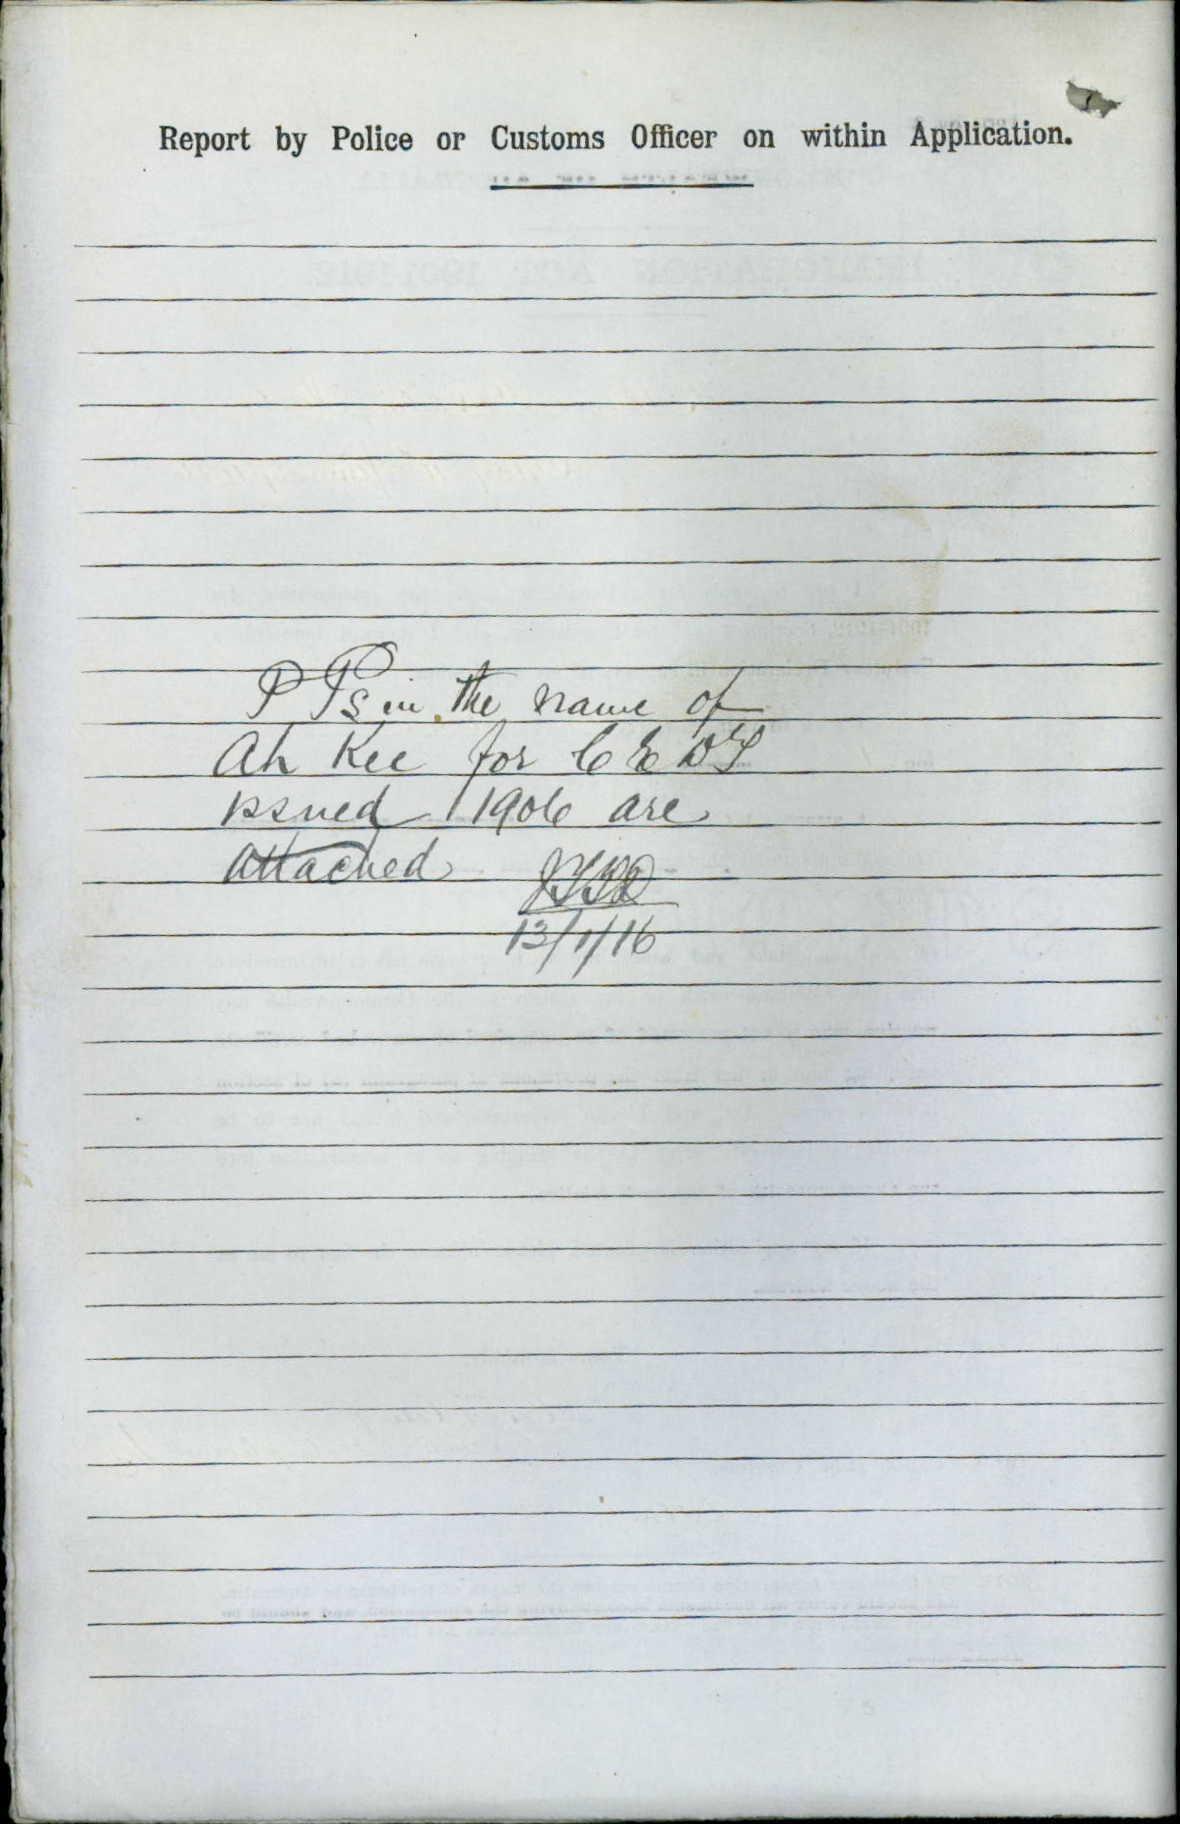 Report by Police or Customs Officer on within Application.
P Ps in the name of
Ah Kee for C E D T
issued 1906 are
attached
13/1/16